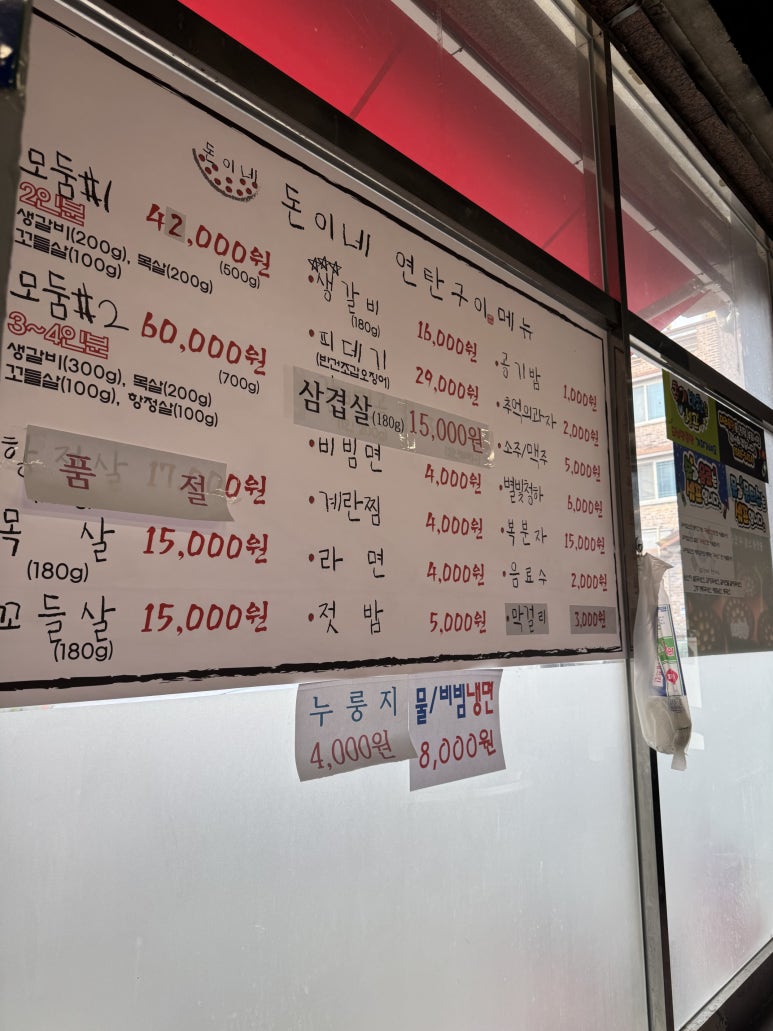 돈이네
돈이네 연탄구이 메뉴
모둠#1
2인분
42,000원
생갈비(200g), 목살(200g)
꼬들살(100g)
(500g)
모둠#2
3~4인분
60,000원
생갈비(300g), 목살(200g)
꼬들살(100g), 항정살(100g)
(700g)
품 절
목 살 15,000원
(180g)
꼬들살 15,000원
(180g)
•생갈비 16,000원
(180g)
•피데기 29,000원
(반건조갑오징어)
삼겹살(180g) 15,000원
•비빔면 4,000원
•계란찜 4,000원
•라 면 4,000원
•젓 밥 5,000원
•공기밥 1,000원
•추억의과자 2,000원
•소주/맥주 5,000원
•별빛청하 6,000원
•복분자 15,000원
•음료수 2,000원
•막걸리 3,000원
누룽지
4,000원
물/비빔냉면
8,000원